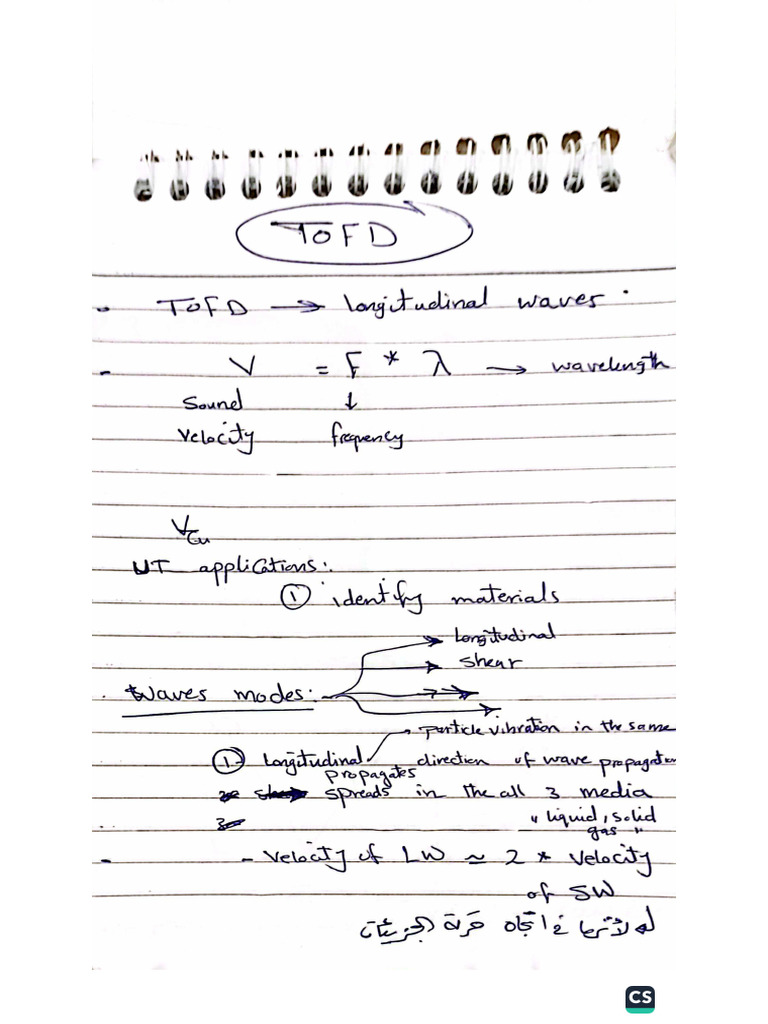 TOFD
- TOFD → longitudinal waves.
- V = F * λ → wavelength
Sound ↓
Velocity frequency
V Cu
UT applications:.
① identify materials
longitudinal
shear
. Waves modes:
particle vibration in the same
① Longitudinal direction of wave propagation
propagates
2- spreads in the all 3 media
3- " liquid, solid
gas "
- - Velocity of LW ≈ 2 * Velocity
of SW
في اتجاه حركة الجزيئات
CS